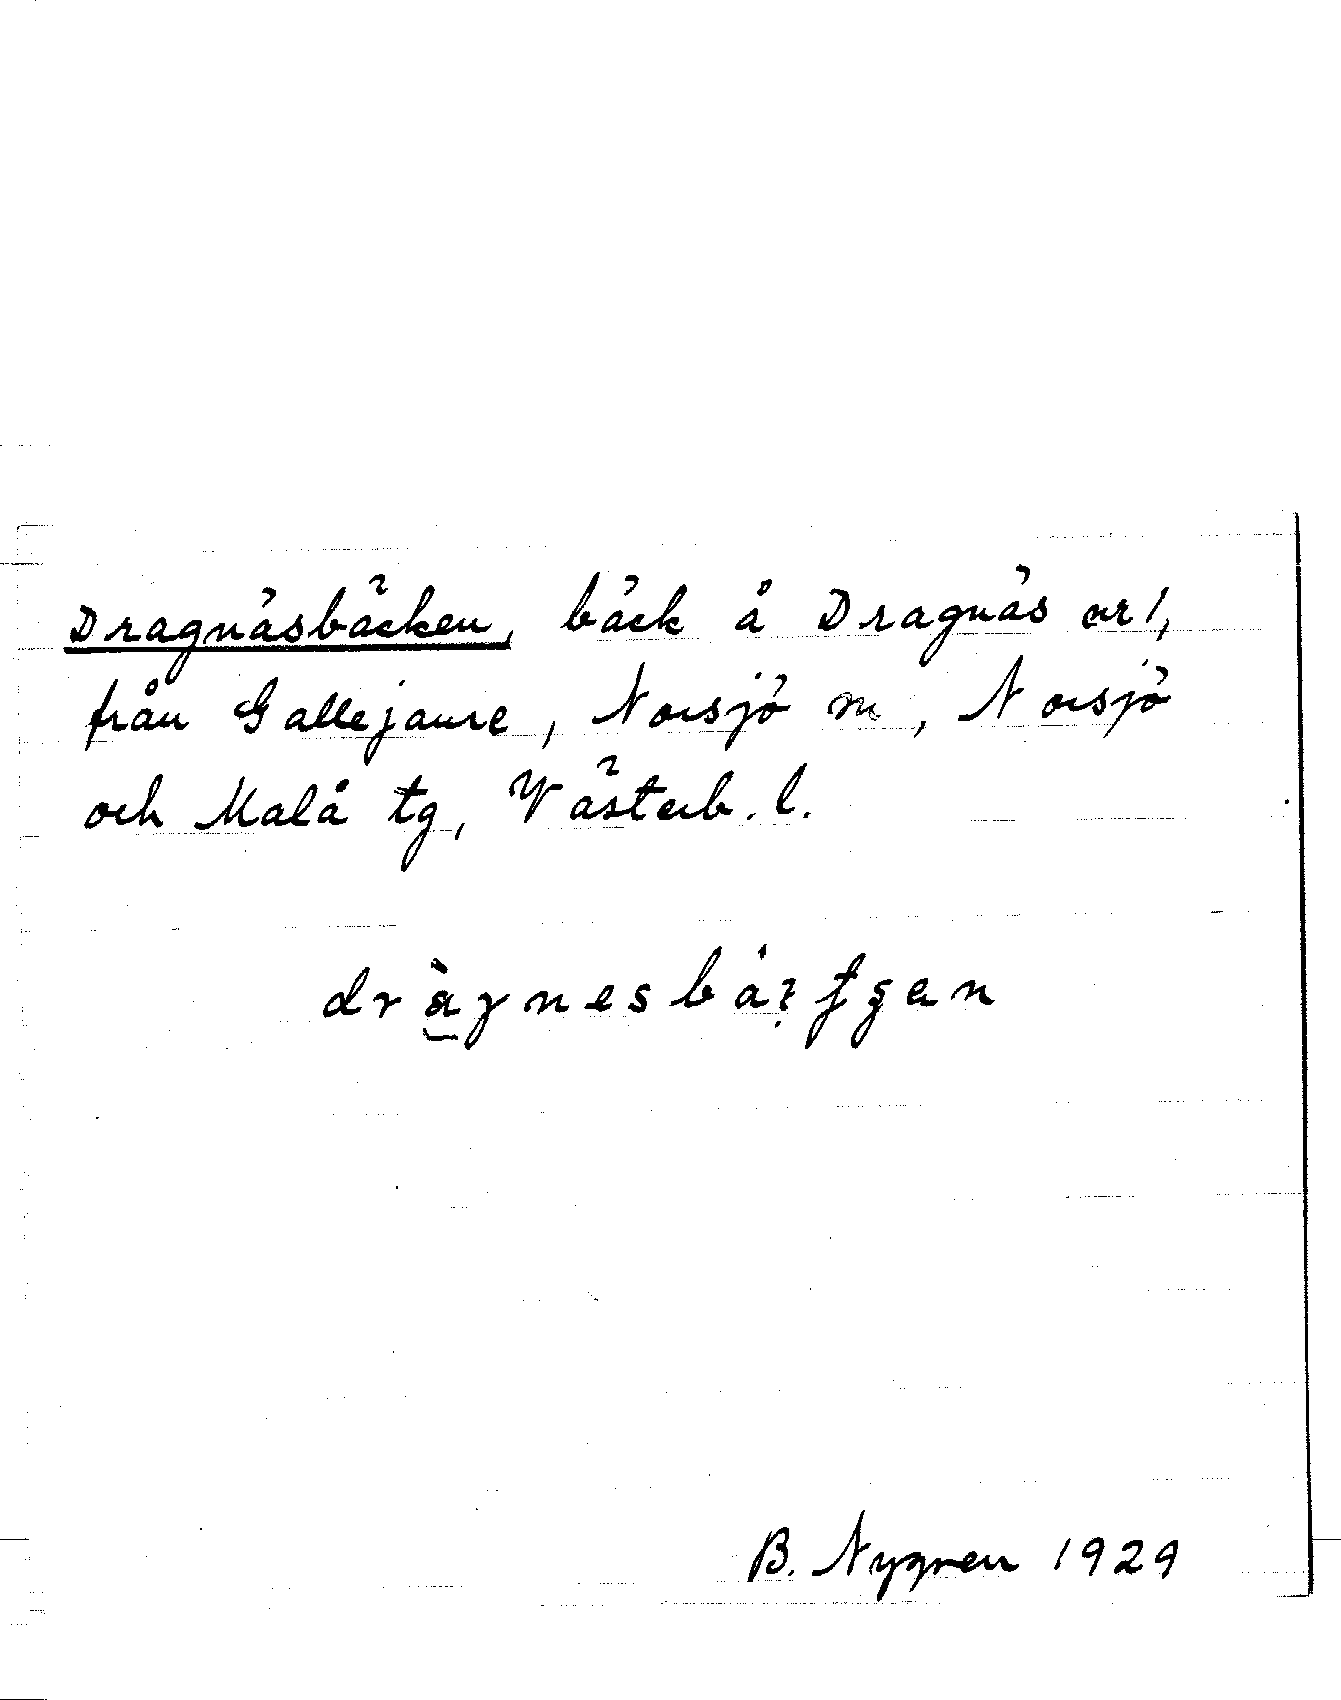 Dragnäsbäcken, bäck å Dragnäs nr 1,
från Gallejaure, Norsjö sn, Norsjö
och Malå tg, Västerb. l.
B. Nygren 1929